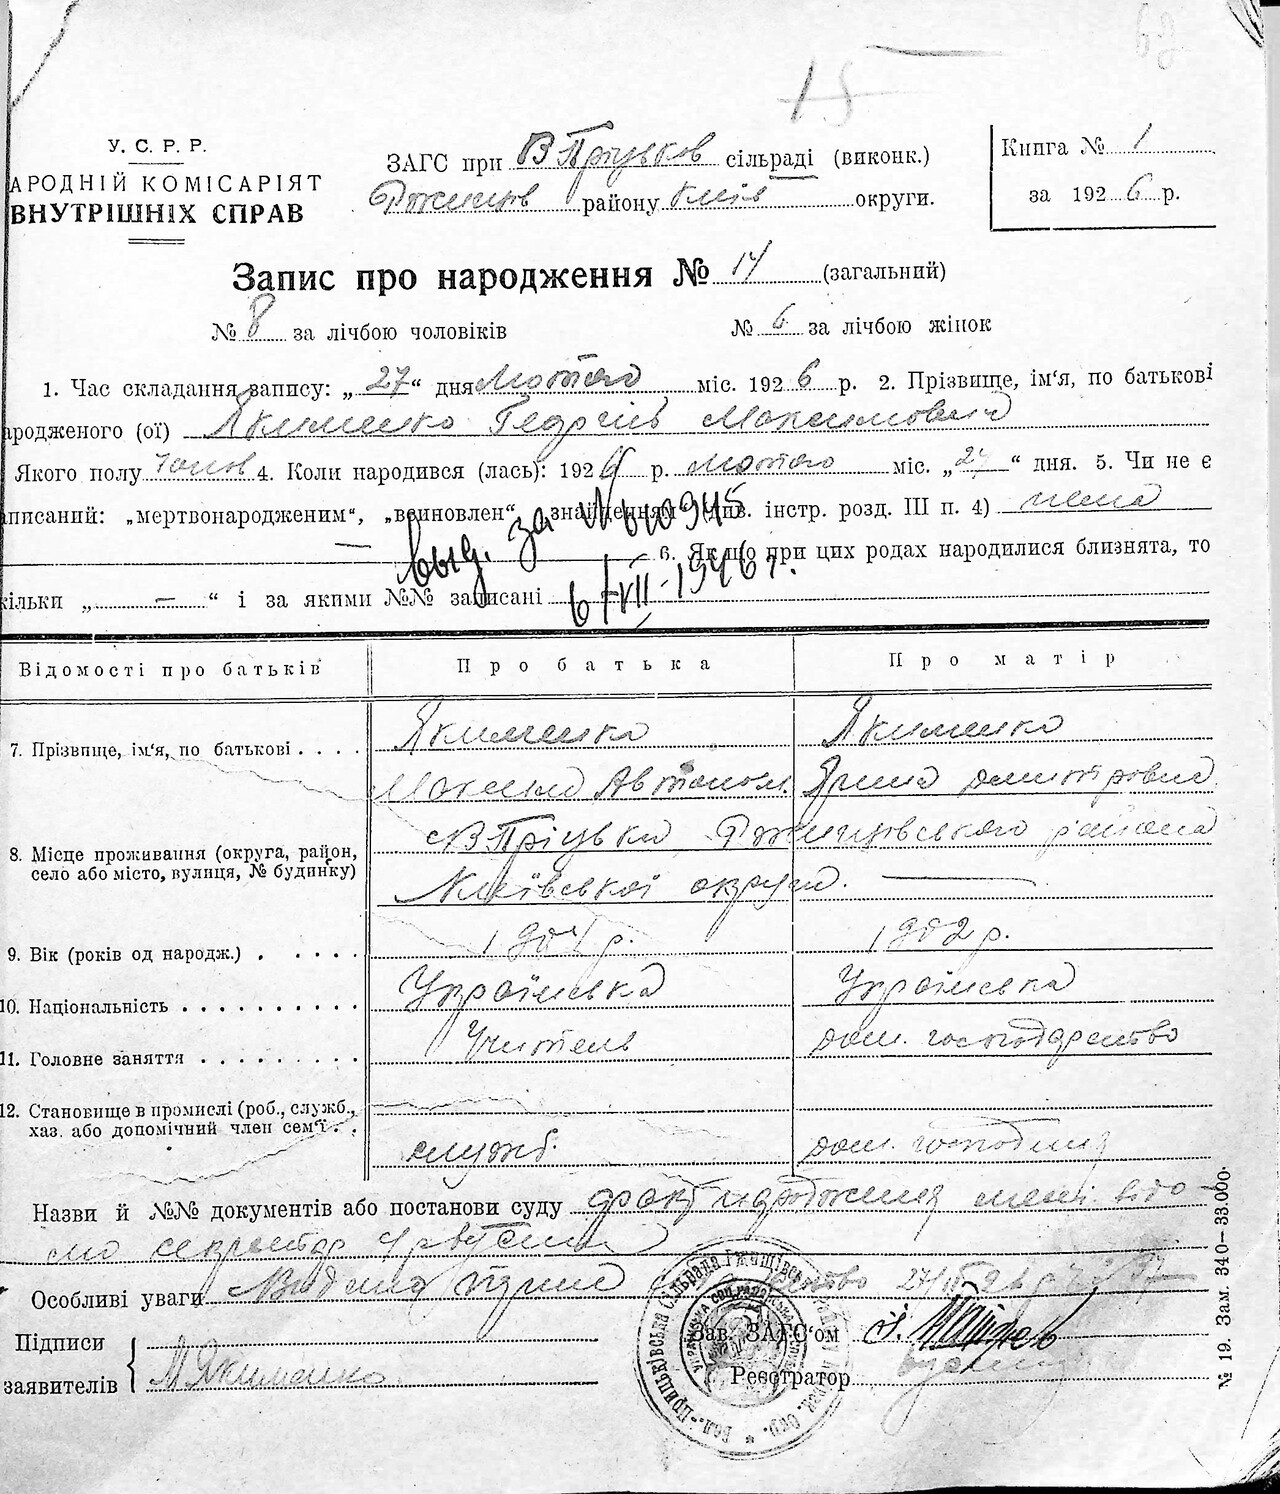 15
У. С. Р. Р.
АРОДНІЙ КОМІСАРІЯТ
ВНУТРІШНІХ СПРАВ
ЗАГС при В Пріцьков сільраді (виконк.)
Ржищів району Київ округи.
Книга № 1
за 1926 р.
Запис про народження № 14 (загальний)
№ 8 за лічбою чоловіків № 6 за лічбою жінок
1. Час складання запису: „27“ дня Лютого міс. 1926 р. 2. Прізвище, ім‘я, по батькові
ародженого (ої) Якименко Георгій Максимович
Якого полу чолов 4. Коли народився (лась): 1926 р. лютого міс. „27“ дня. 5. Чи не є
аписаний: „мертвонародженим“, „всиновлен“, знайденням“ (див. інстр. розд. III п. 4) нема
— 6. Якщо при цих родах народилися близнята, то
кільки „ — “ і за якими №№ записані
выд. за №
6/VII-1946 г.
Відомості про батьків Про батька Про матір
7. Прізвище, ім‘я, по батькові . . . . Якименко Якименко
Максим Автоном. Ярина Дмитровна
8. Місце проживання (округа, район, село або місто, вулиця, № будинку) В Пріцьки Ржищівського района
Київської округи. —
9. Вік (років од народж.) . . . . . 1904 р. 1902 р.
10. Національність . . . . . . . . . . Українська Українська
11. Головне заняття . . . . . . . . . Учитель дом. господарство
12. Становище в промислі (роб., служб.,
хаз. або допомічний член сем‘ї . . служб. дом. господиня
Назви й №№ документів або постанови суду факт народження мені відо-
мо секретар
Особливі уваги Видана
Підписи
заявителів М Якименко
Зав. ЗАГС‘ом
Реєстратор
№ 19. Зам. 340—33.000.